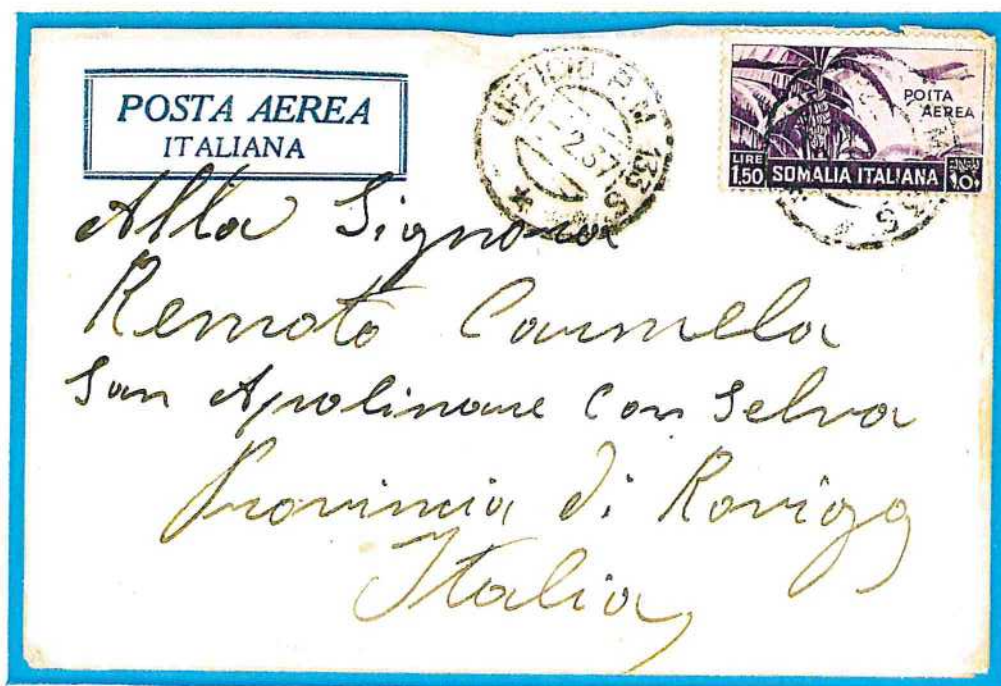 POSTA AEREA
ITALIANA
UFFICIO P.M. 133 S
2.37
POSTA
AEREA
LIRE
1.50
SOMALIA ITALIANA
Alla Signora
Remoto Carmela
San Apolinare Con Selva
Provincia di Rovigo
Italia